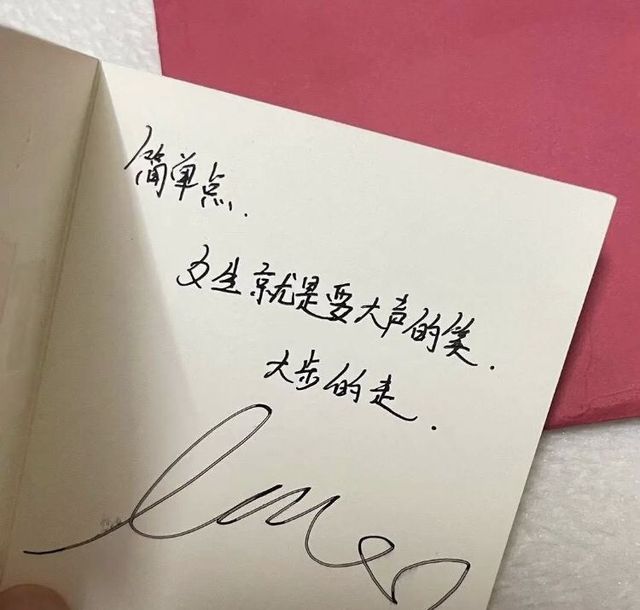 简单点.
女生就是要大声的笑.
大步的走.